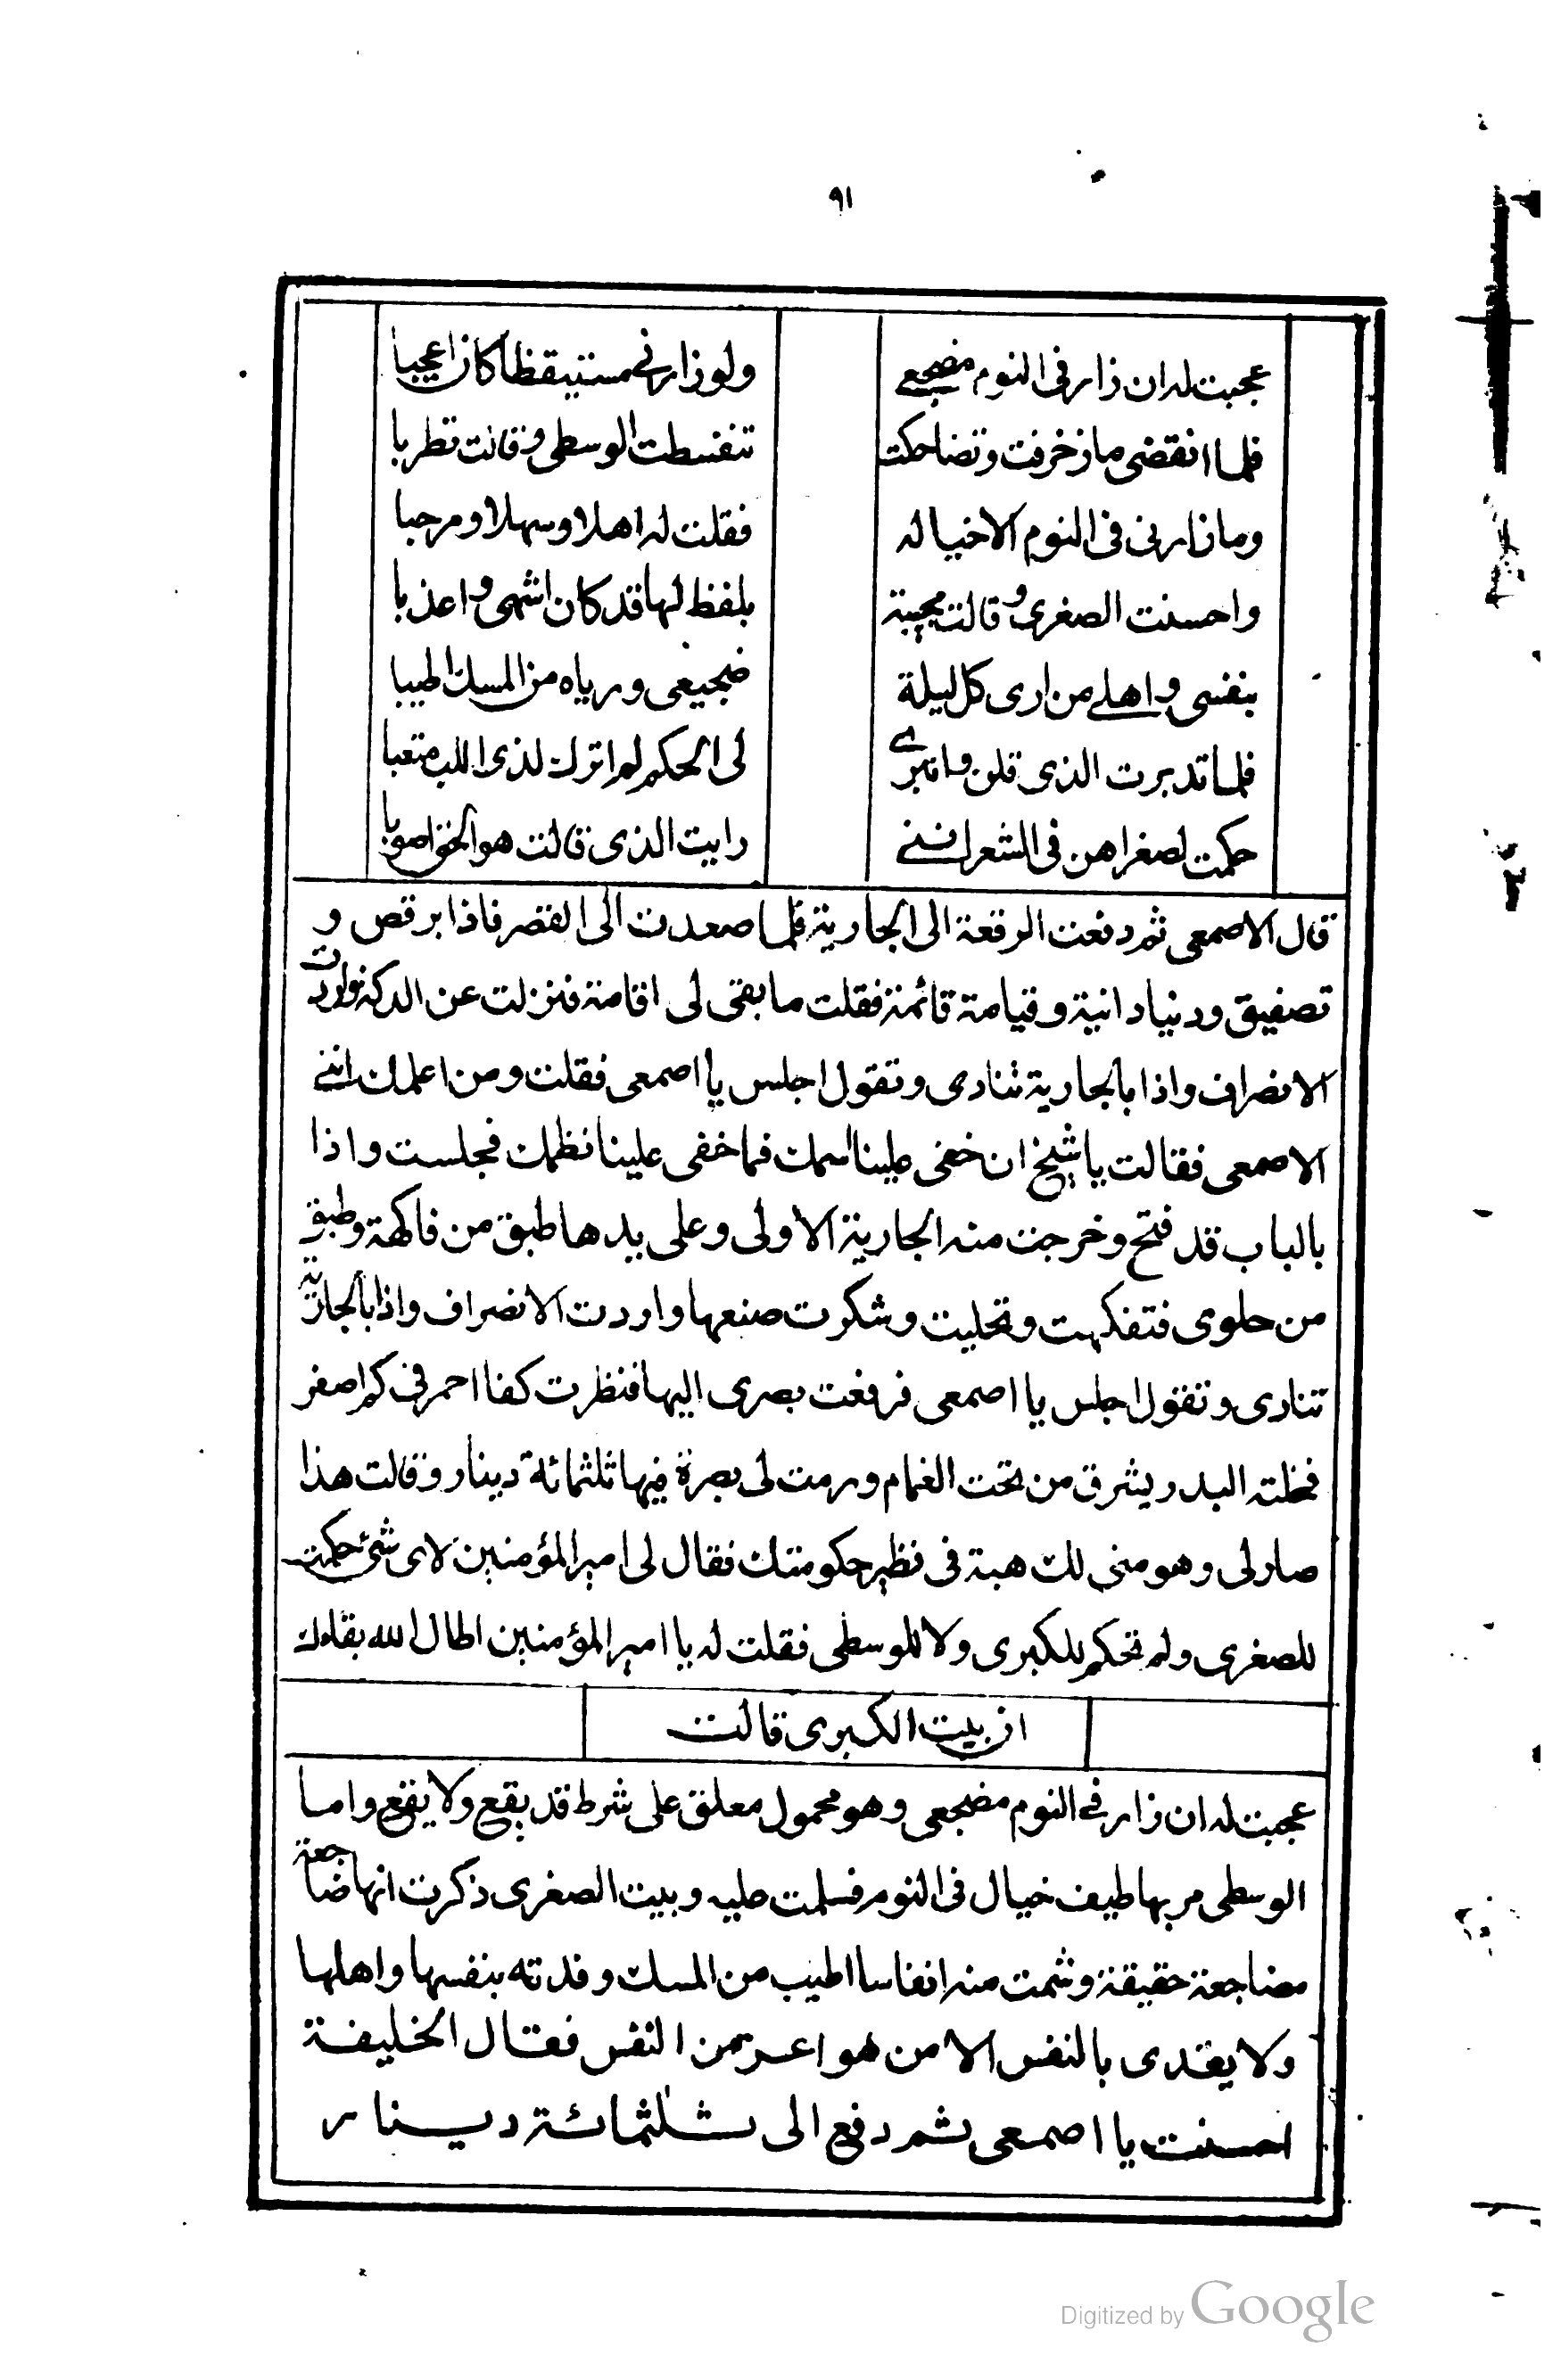 ٩١
عجبت له ان زار في النوم مضجعي ولو زارني مستيقظا كان اعجبا
فلما انقضى ما زخرفت وتضاحكت تنفسطت الوسطى وقالت تطربا
وما زارني في النوم الا خياله فقلت له اهلا وسهلا ومرحبا
واحسنت الصغرى وقالت مجيبة بلفظ لها قد كان اشهى واعذبا
بنفسي واهلي من ارى كل ليلة ضجيعي ورياه من المسك اطيبا
فلما تدبرت الذي قلن وانبرى لي الحكم لم اترك لذي اللب متعبا
حكمت لصغراهن في الشعر انني رايت الذي قالت هو الحق اصوبا
قال الاصمعي ثم دفعت الرقعة الى الجارية فلما صعدت الى القصر فاذا برقص و
تصفيق ودنيا دانية وقيامة قائمة فقلت ما بقى لى اقامة فنزلت عن الدكة واردت
الانصراف واذا بالجارية تنادى وتقول اجلس يا اصمعى فقلت ومن اعلمك اننى
الاصمعى فقالت يا شيخ ان خفى علينا اسمك فما خفى علينا نظمك فجلست واذا
بالباب قد فتح وخرجت منه الجارية الاولى وعلى يدها طبق من فاكهة وطبق
من حلوى فتفكهت وتحليت وشكرت صنعها واردت الانصراف واذا بالجارية
تنادى وتقول اجلس يا اصمعى فرفعت بصرى اليها فنظرت كفا احمر فى كم اصفر
فخلته البدر يشرق من تحت الغمام ورمت لى بصرة فيها ثلثمائة دينار وقالت هذا
صار لى وهو منى لك هبة فى نظير حكومتك فقال لى امير المؤمنين لاى شئ حكمت
للصغرى ولم تحكم للكبرى ولا للوسطى فقلت له يا امير المؤمنين اطال الله بقاءك
ان بيت الكبرى قالت
عجبت له ان زار فى النوم مضجعى وهو محمول معلق على شرط قد يقع ولا يقع واما
الوسطى مر بها طيف خيال فى النوم فسلمت عليه وبيت الصغرى ذكرت انها ضاجعة
مضاجعة حقيقة وشمت منه انفاسا اطيب من المسك وفدته بنفسها واهلها
ولا يفدى بالنفس الا من هو اعز من النفس فقال الخليفة
احسنت يا اصمعى ثم دفع الى ثلثمائة دينار
Digitized by Google